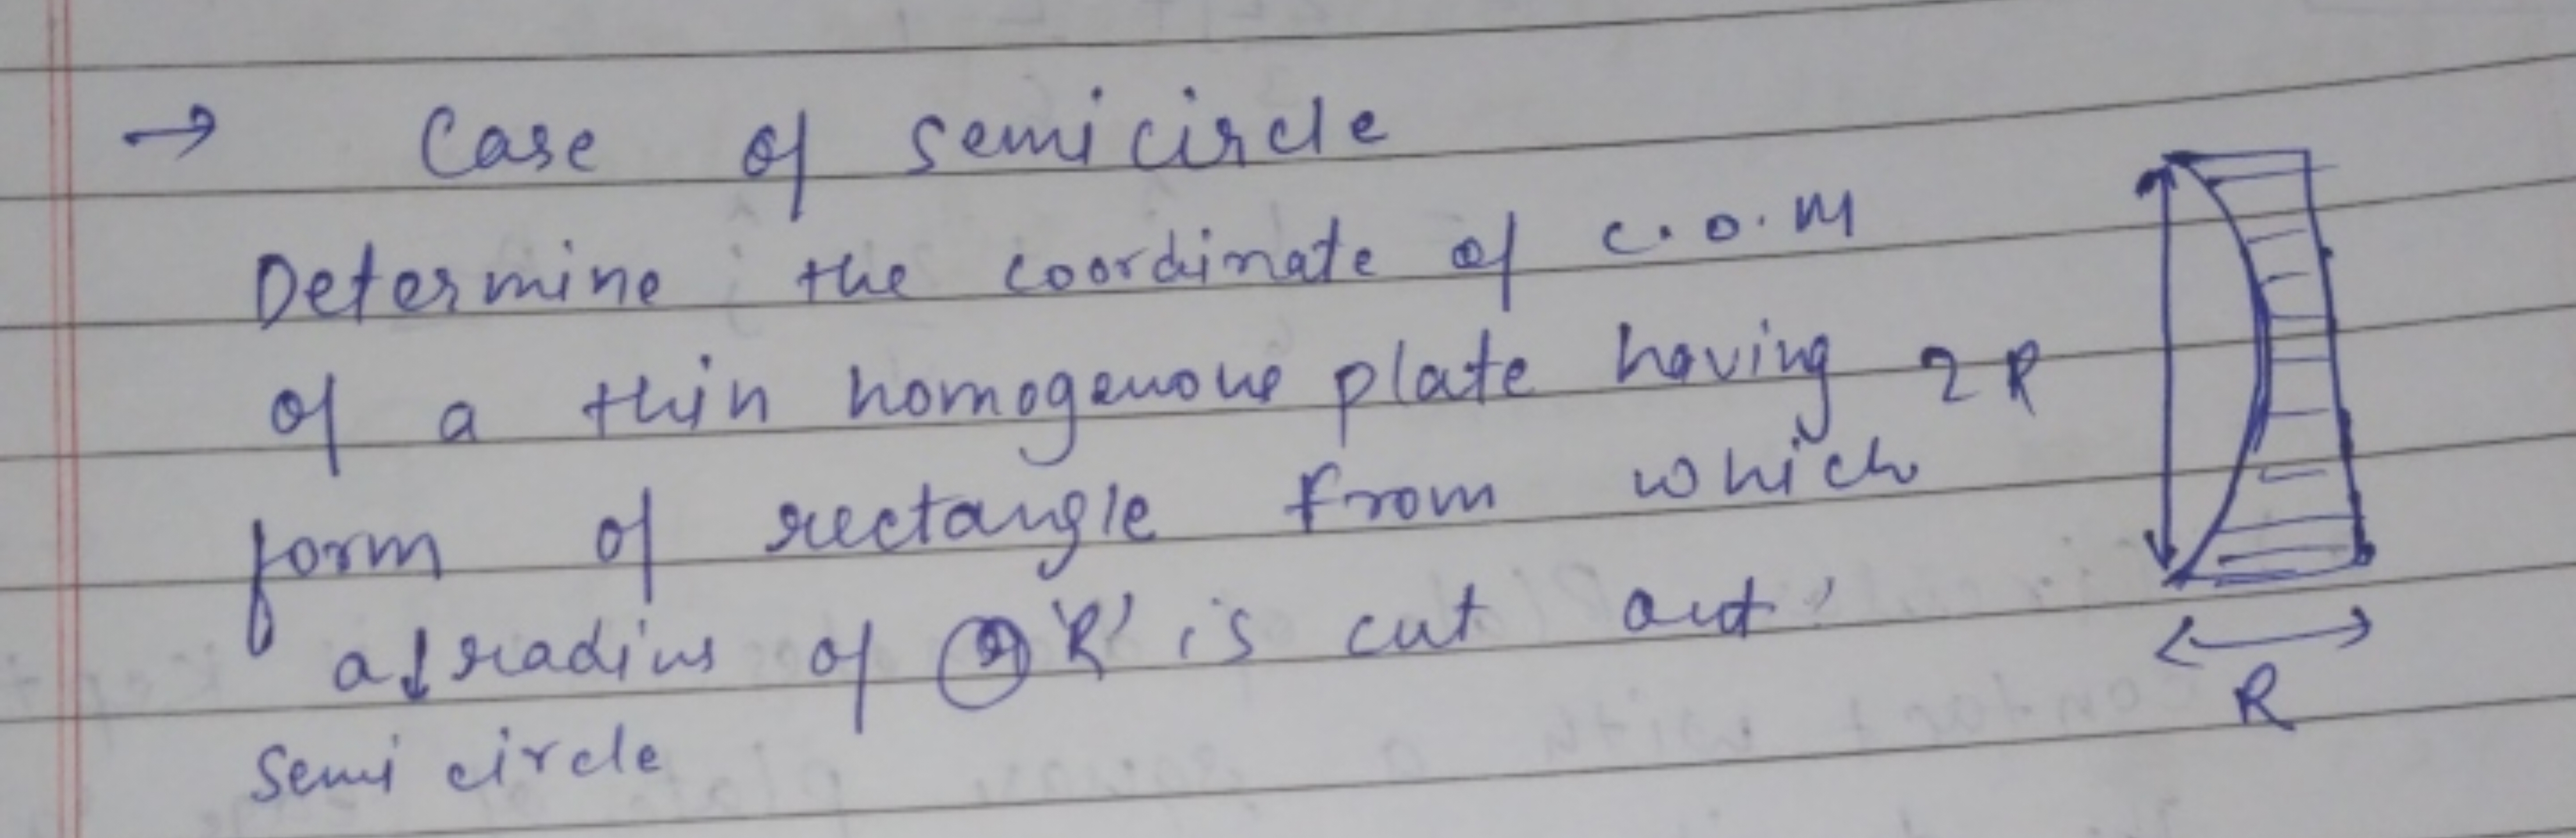 → Case of semicircle
Determine the coordinate of c.o.M
of a thin homogenous plate having
form of rectangle from which
a radius of 'R' is cut out.
semi circle
2R
R